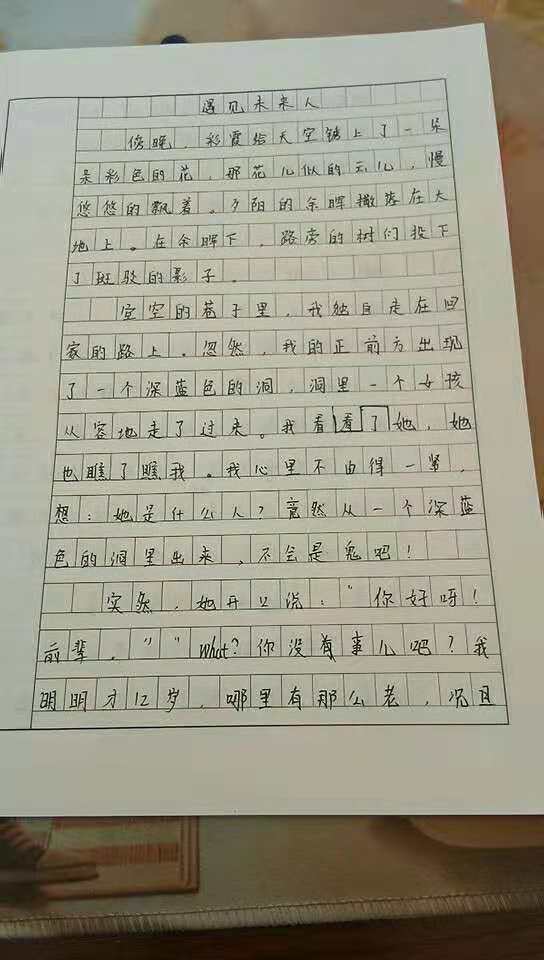 遇见未来人
傍晚，彩霞给天空绣上了一朵
朵彩色的花，那花儿似的云儿，慢
悠悠的飘着。夕阳的余晖撒落在大
地上。在余晖下，路旁的树们投下
了斑驳的影子。
空空的巷子里，我独自走在回
家的路上。忽然，我的正前方出现
了一个深蓝色的洞，洞里一个女孩
从容地走了过来。我看看了她，她
也瞧了瞧我。我心里不由得一紧，
想：她是什么人？竟然从一个深蓝
色的洞里出来，不会是鬼吧！
突然，她开口说：“你好呀！
前辈，”“what？你没有事儿吧？我
明明才12岁，哪里有那么老，况且